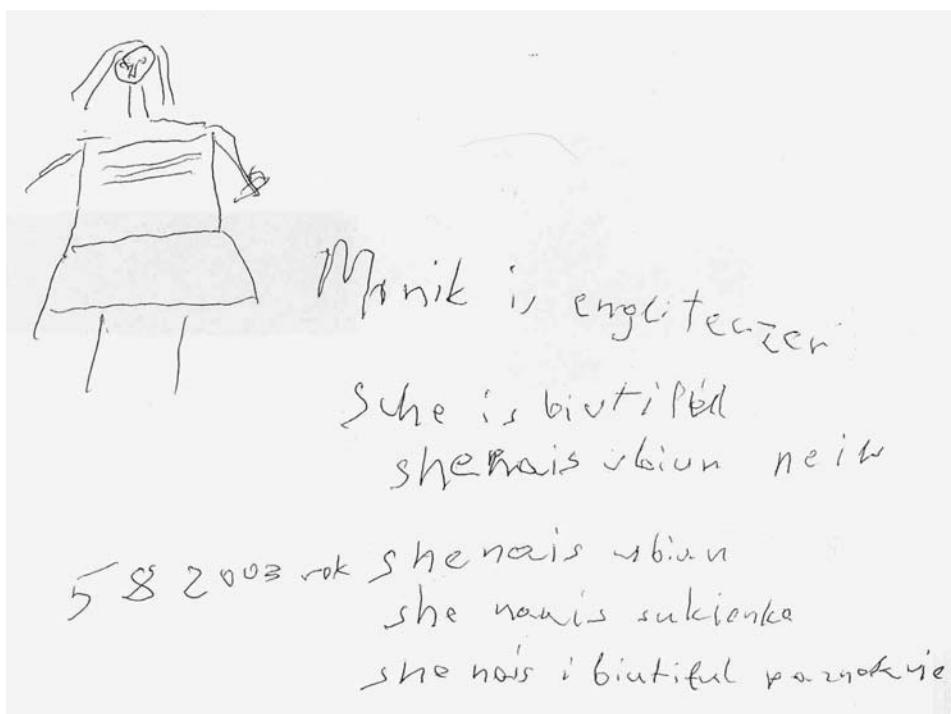 Monik is engliteczer
Sche is biutiful
shenais ubiun neils
5 8 2003 rok shenais ubiun
she nauis sukienka
she nais i biutiful paznokcie